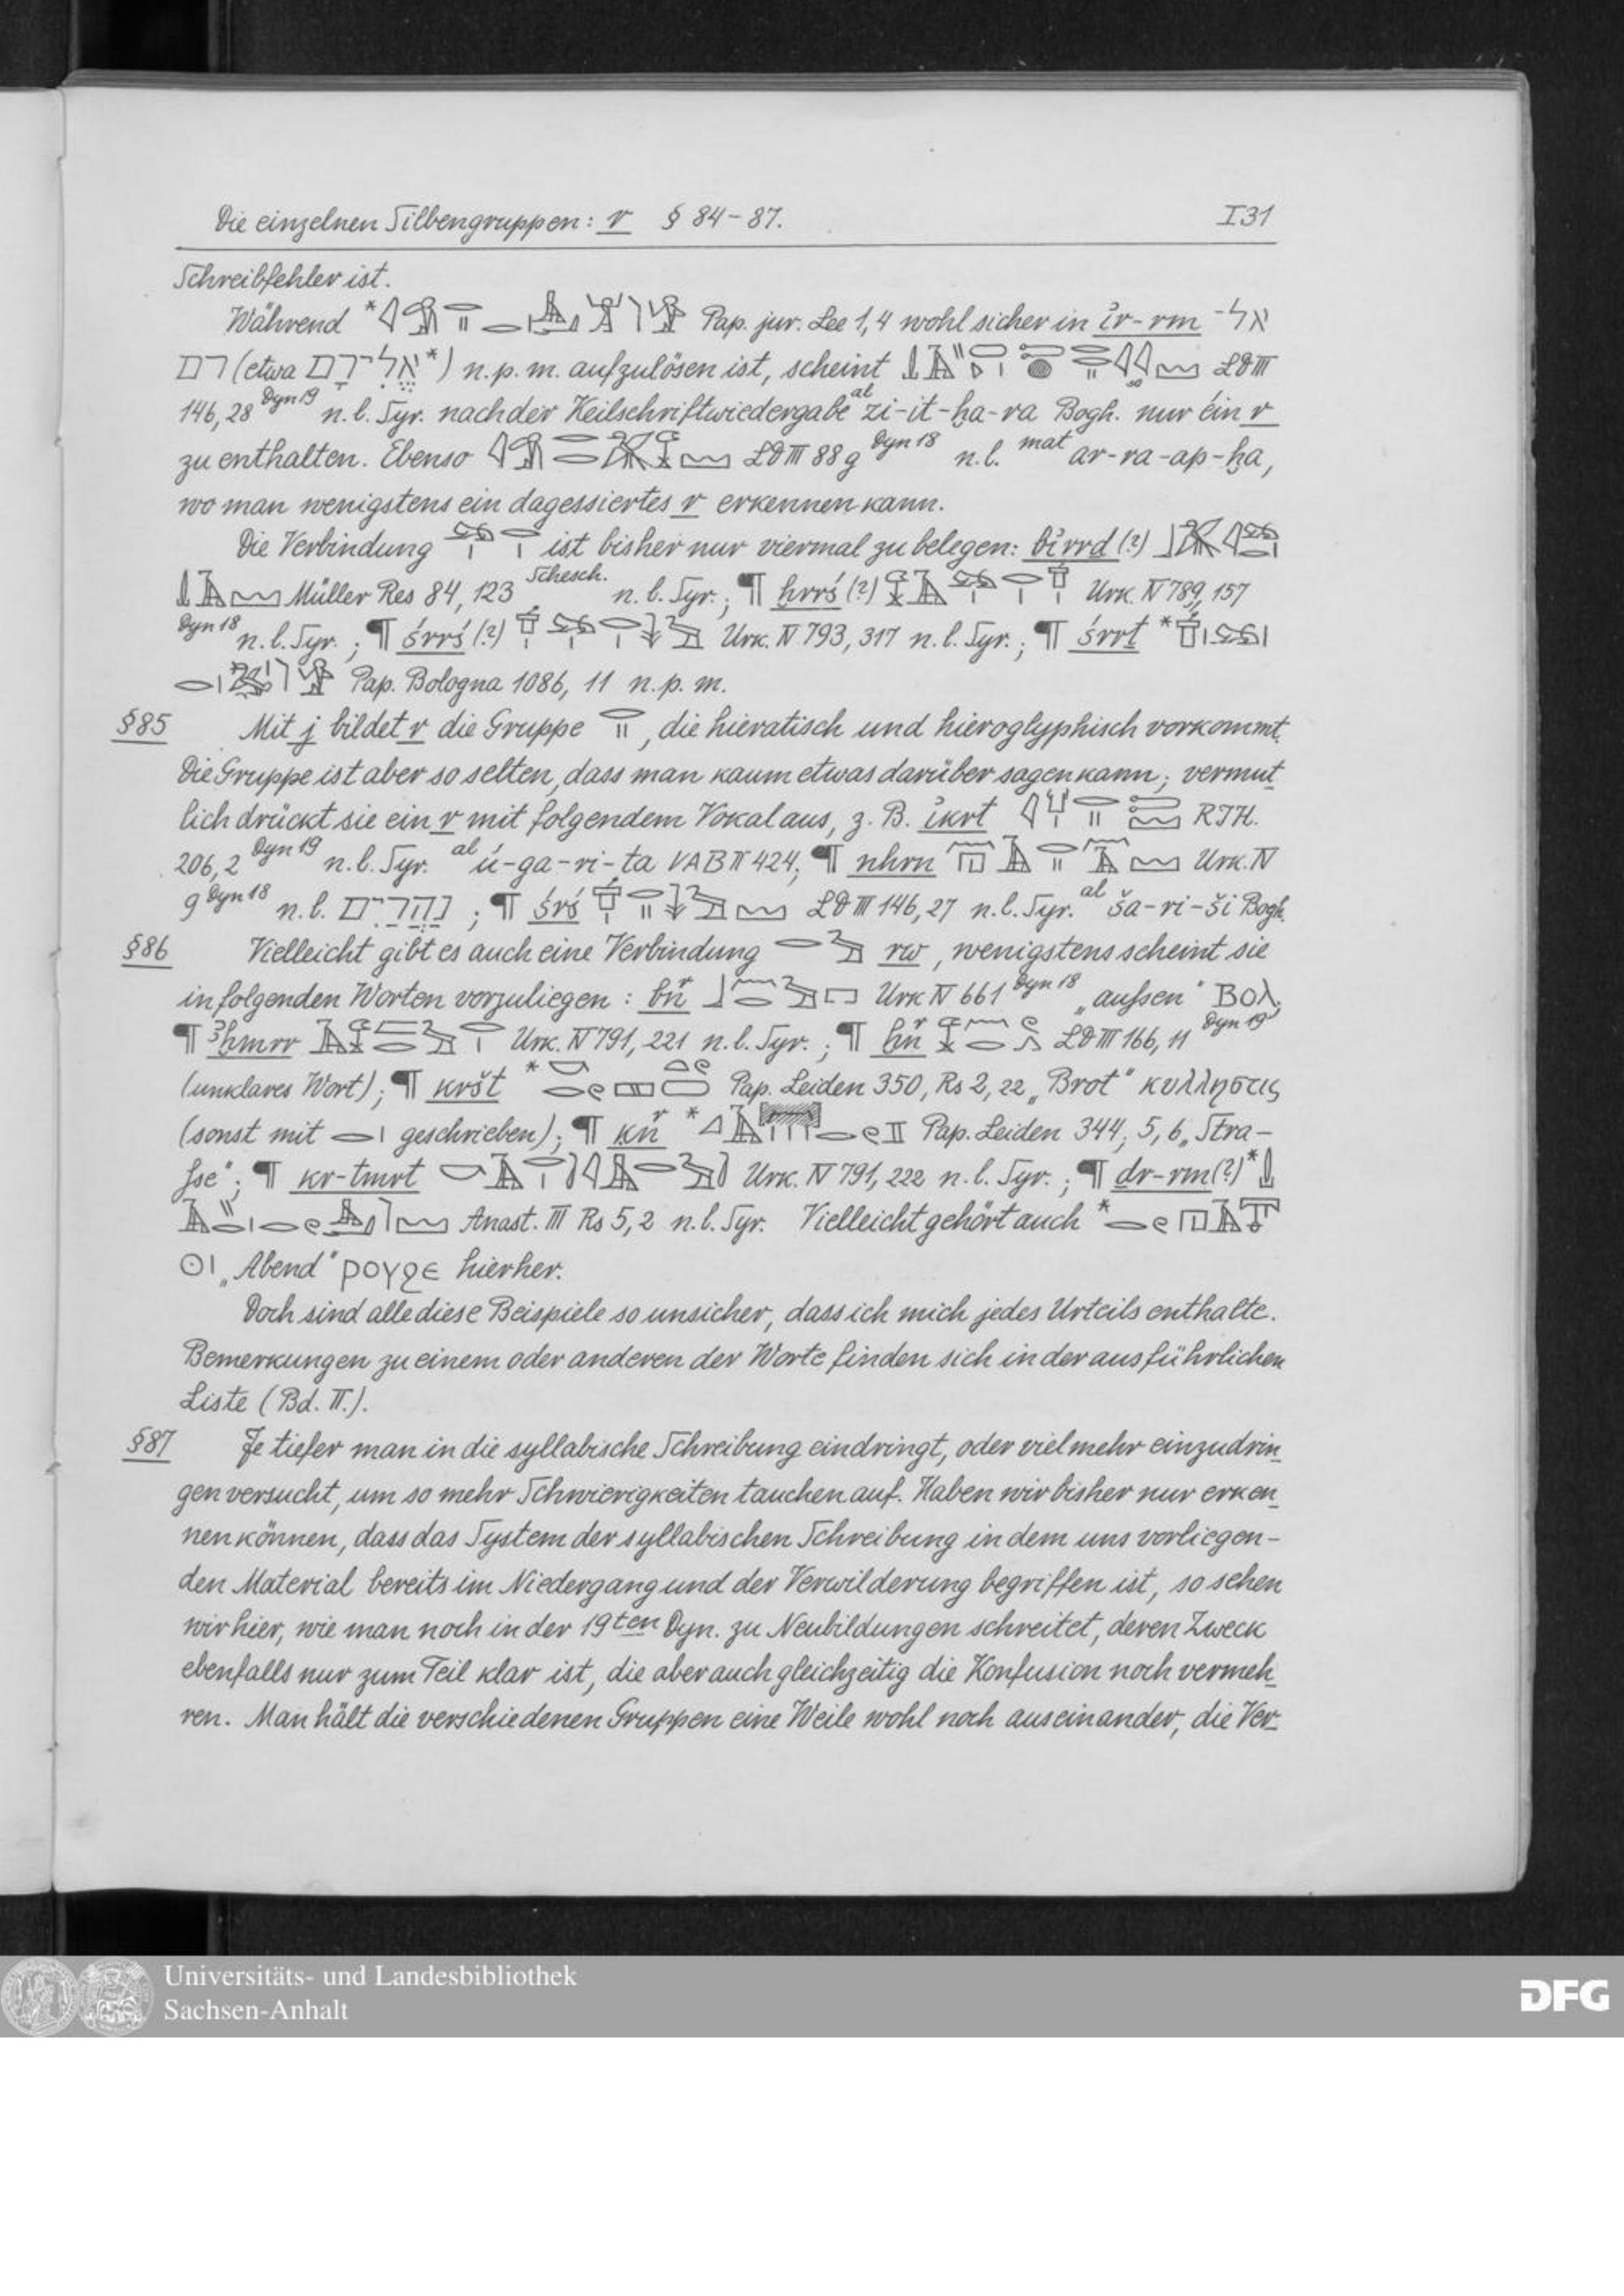 Die einzelnen Silbengruppen: r § 84-87. I31
Schreibfehler ist.
Während * Pap. jur. Lee 1,4 wohl sicher in ỉr-rm אל-
רם (etwa אֱלִירָם*) n.p.m. aufzulösen ist, scheint LD III
146,28 Dyn 19 n.l. Syr. nach der Keilschriftwiedergabe al zi-it-ḫa-ra Bogh. nur ein r
zu enthalten. Ebenso LD III 88g Dyn 18 n.l. mat ar-ra-ap-ḫa,
wo man wenigstens ein dagessiertes r erkennen kann.
Die Verbindung ist bisher nur viermal zu belegen: bỉrrd (?)
Müller Res 84, 123 Schesch. n.l. Syr.; ¶ ḫrrś (?) Urk. IV 789, 157
Dyn 18 n.l. Syr.; ¶ śrrś (?) Urk. IV 793, 317 n.l. Syr.; ¶ śrrt *
Pap. Bologna 1086, 11 n.p.m.
§85 Mit j bildet r die Gruppe , die hieratisch und hieroglyphisch vorkommt.
Die Gruppe ist aber so selten, dass man kaum etwas darüber sagen kann; vermut-
lich drückt sie ein r mit folgendem Vokal aus, z.B. ỉkrt RIH.
206,2 Dyn 19 n.l. Syr. al ú-ga-ri-ta VAB II 424; ¶ nhrn Urk. IV
9 Dyn 18 n.l. נַהֲרַיִם; ¶ śrś LD III 146,27 n.l. Syr. al ša-ri-ši Bogh.
§86 Vielleicht gibt es auch eine Verbindung rw, wenigstens scheint sie
in folgenden Worten vorzuliegen: Urk IV 661 Dyn 18 „aussen" ⲃⲟⲗ;
¶ ꜣḫmrr Urk. IV 791, 221 n.l. Syr.; ¶ LD III 166, 11 Dyn 19
(unklares Wort); ¶ kršt * Pap. Leiden 350, Rs 2, 22 „Brot" κυλληστις
(sonst mit geschrieben); ¶ * Pap. Leiden 344, 5, 6 „Stra-
sse"; ¶ kr-tmrt Urk. IV 791, 222 n.l. Syr.; ¶ dr-rm (?) *
Anast. III Rs 5,2 n.l. Syr. Vielleicht gehört auch *
„Abend" ⲣⲟⲩϩⲉ hierher.
Doch sind alle diese Beispiele so unsicher, dass ich mich jedes Urteils enthalte.
Bemerkungen zu einem oder anderen der Worte finden sich in der ausführlichen
Liste (Bd. II.).
§87 Je tiefer man in die syllabische Schreibung eindringt, oder vielmehr einzudrin-
gen versucht, um so mehr Schwierigkeiten tauchen auf. Haben wir bisher nur erken-
nen können, dass das System der syllabischen Schreibung in dem uns vorliegen-
den Material bereits im Niedergang und der Verwilderung begriffen ist, so sehen
wir hier, wie man noch in der 19ten Dyn. zu Neubildungen schreitet, deren Zweck
ebenfalls nur zum Teil klar ist, die aber auch gleichzeitig die Konfusion noch vermeh-
ren. Man hält die verschiedenen Gruppen eine Weile wohl noch auseinander, die Ver-
Universitäts- und Landesbibliothek
Sachsen-Anhalt
DFG